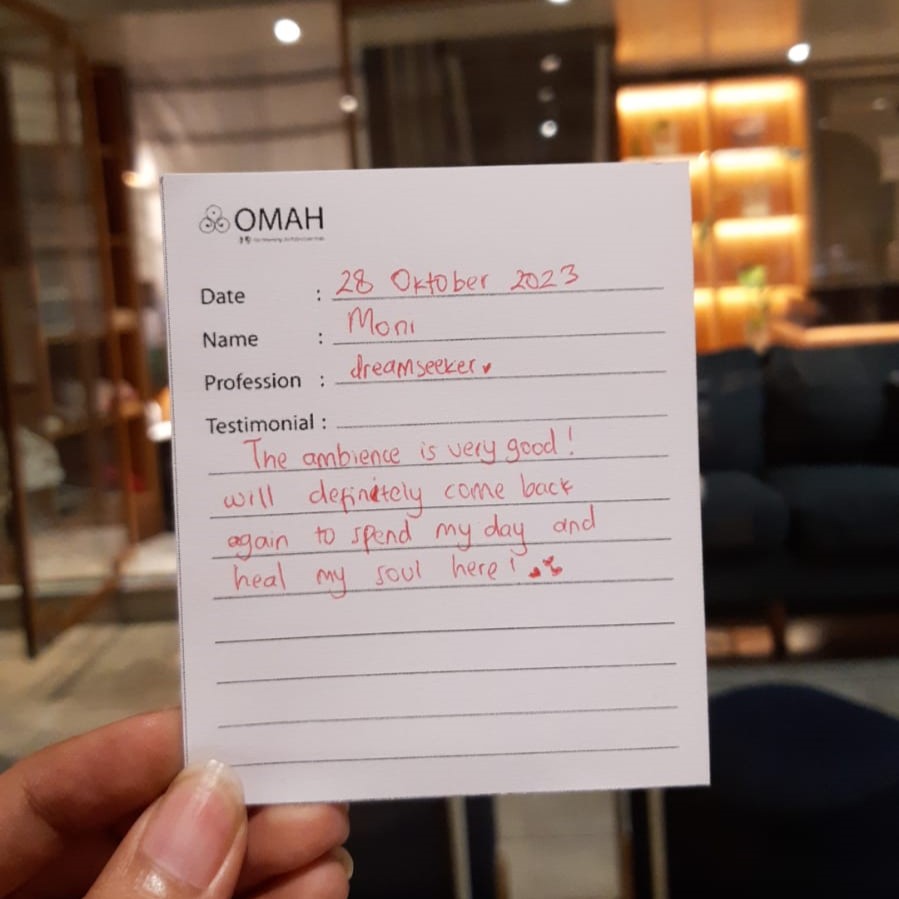 OMAH
Date : 28 Oktober 2023
Name : Moni
Profession : dreamseeker
Testimonial :
The ambience is very good!
will definitely come back
again to spend my day and
heal my soul here!